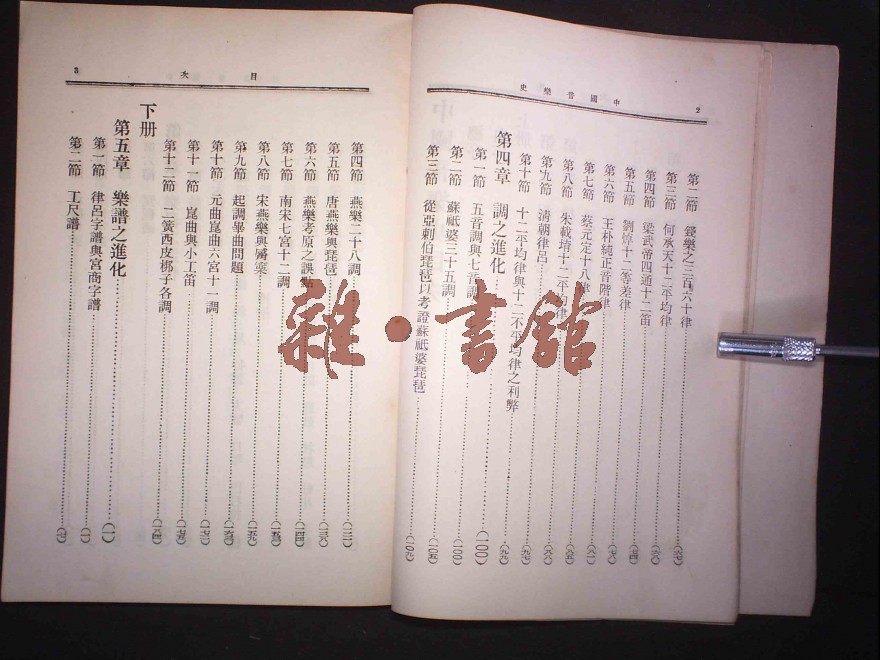 2
中國音樂史
第二節 錢樂之三百六十律
第三節 何承天十二平均律
第四節 梁武帝四通十二笛
第五節 劉焯十二等差律
第六節 王朴純正音階律
第七節 蔡元定十八律
第八節 朱載堉十二平均律
第九節 清朝律呂
第十節 十二平均律與十二不平均律之利弊
第四章 調之進化(一〇〇)
第一節 五音調與七音調
第二節 蘇祇婆三十五調(一〇〇)
第三節 從亞剌伯琵琶以考證蘇祇婆琵琶(一〇九)
目次
3
第四節 燕樂二十八調
第五節 唐燕樂與琵琶
第六節 燕樂考原之誤點
第七節 南宋七宮十二調
第八節 宋燕樂與
第九節 起調畢曲問題
第十節 元曲崑曲六宮十一調
第十一節 崑曲與小工笛
第十二節 二簧西皮梆子各調
下册
第五章 樂譜之進化(一)
第一節 律呂字譜與宮商字譜(一)
第二節 工尺譜(七)
雜·書館